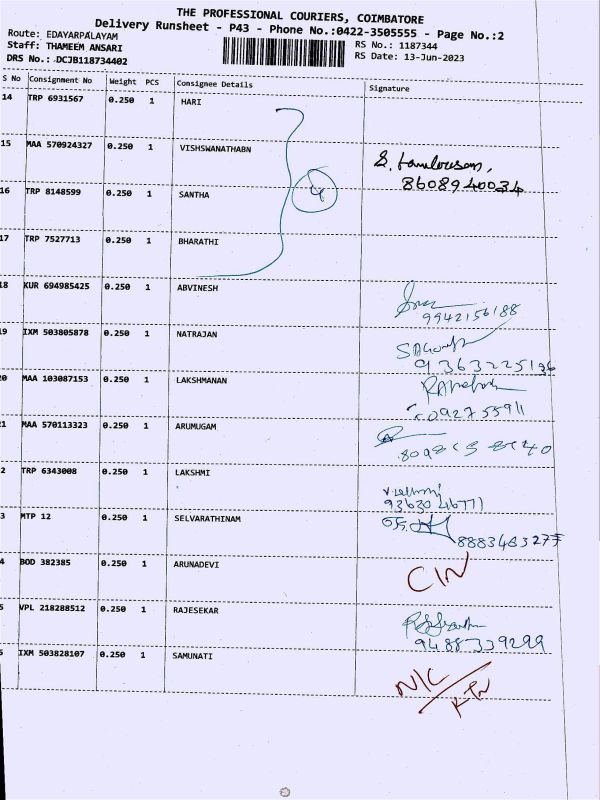 THE PROFESSIONAL COURIERS, COIMBATORE
Delivery Runsheet - P43 - Phone No.:0422-3505555 - Page No.:2
Route: EDAYARPALAYAM
RS No.: 1187344
Staff: THAMEEM ANSARI
RS Date: 13-Jun-2023
DRS No.: DCJB118734402
S No Consignment No Weight PCS Consignee Details Signature
14 TRP 6931567 0.250 1 HARI
15 MAA 570924327 0.250 1 VISHSWANATHABN
8608940034
16 TRP 8148599 0.250 1 SANTHA
4
17 TRP 7527713 0.250 1 BHARATHI
18 KUR 694985425 0.250 1 ABVINESH
9942156188
19 IXM 503805878 0.250 1 NATRAJAN
9363225136
20 MAA 103087153 0.250 1 LAKSHMANAN
21 MAA 570113323 0.250 1 ARUMUGAM
2 TRP 6343008 0.250 1 LAKSHMI
9363046771
3 MTP 12 0.250 1 SELVARATHINAM
4 BOD 382385 0.250 1 ARUNADEVI
CIN
5 VPL 218288512 0.250 1 RAJESEKAR
9488339299
6 IXM 503828107 0.250 1 SAMUNATI
N/C